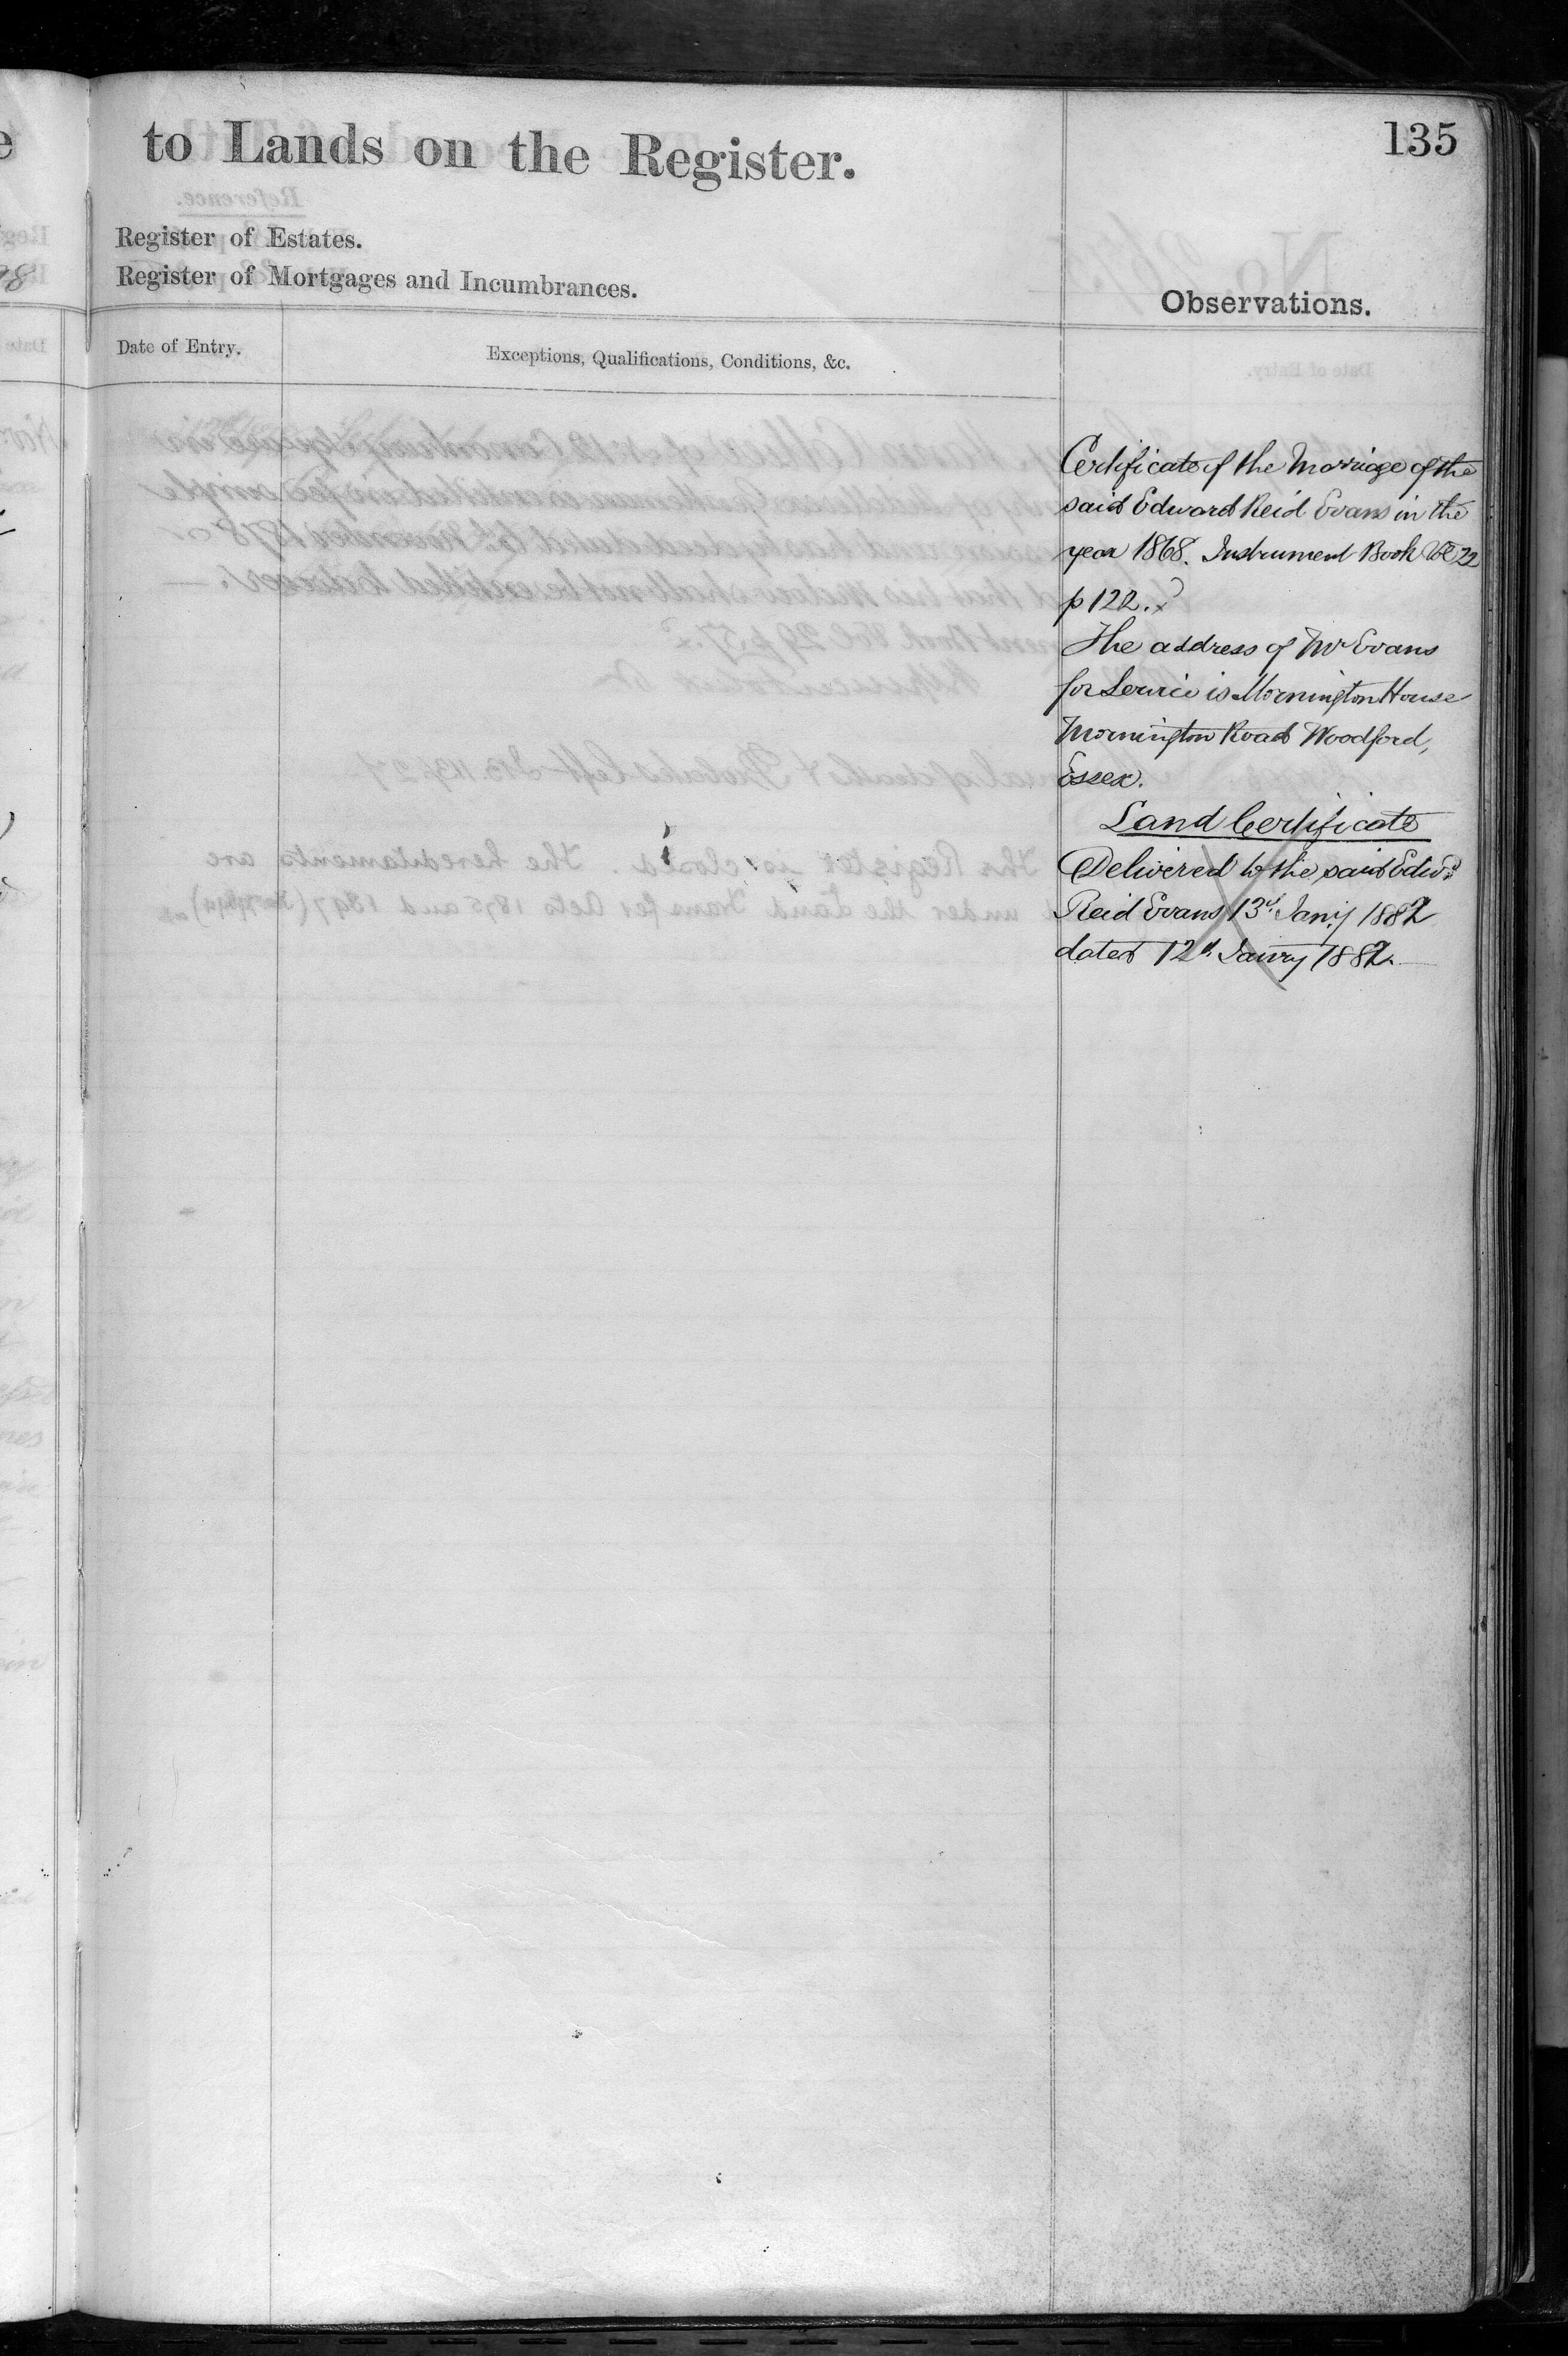 135
to Lands on the Register.
Register of Estates.
Register of Mortgages and Incumbrances.
Observations.
Date of Entry.
Exceptions, Qualifications, Conditions, &c.
Certificate of the Marriage of the
said Edward Reid Evans in the
year 1868. Instrument Book Vol 22
p 122.
The address of Mr Evans
for Service is Mornington House
Mornington Road Woodford,
Essex.
Land Certificate
Delivered to the said Edwd
Reid Evans 13th Jany 1882
dated 12th Janry 1882.